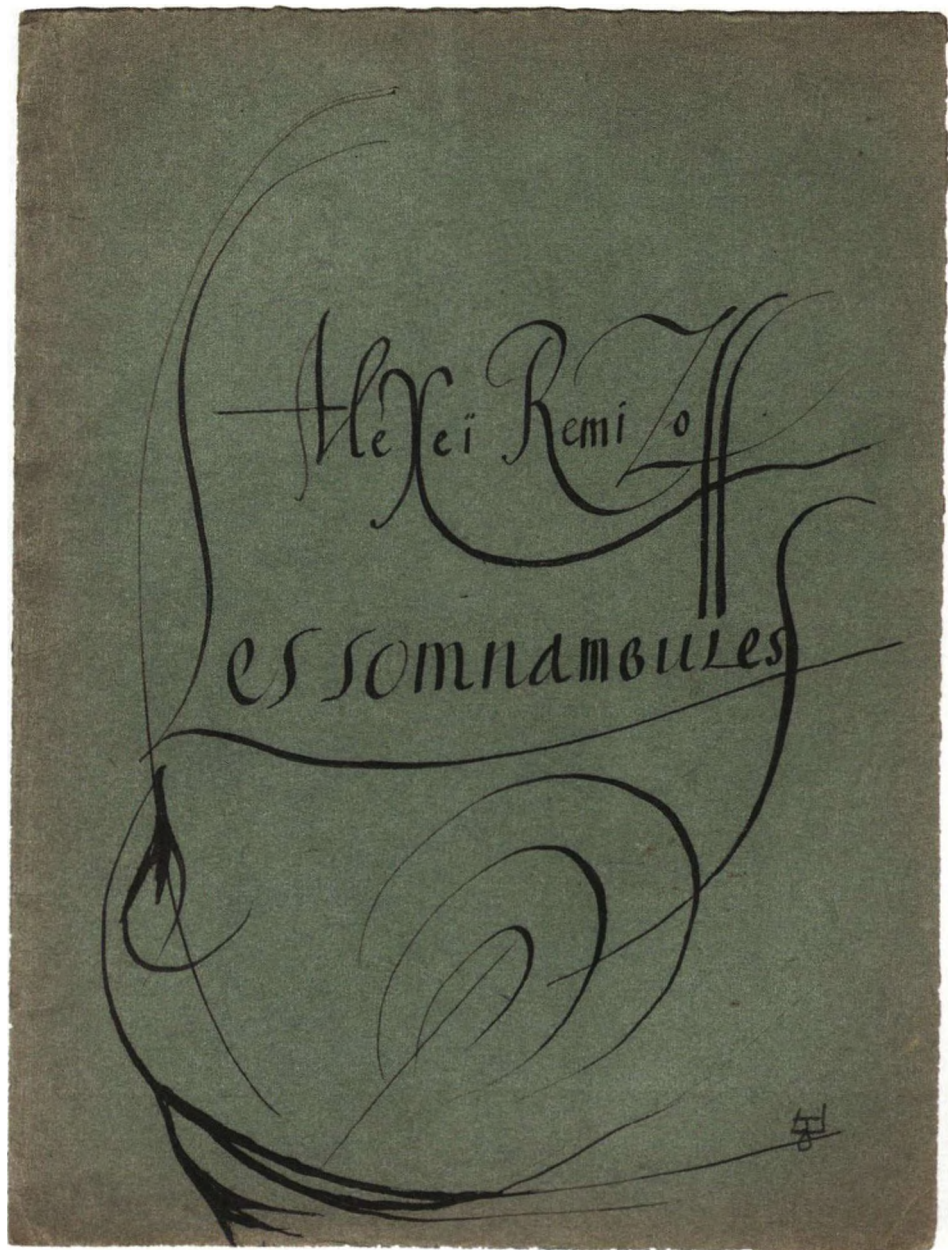 Alexeï Remizoff
Les somnambules